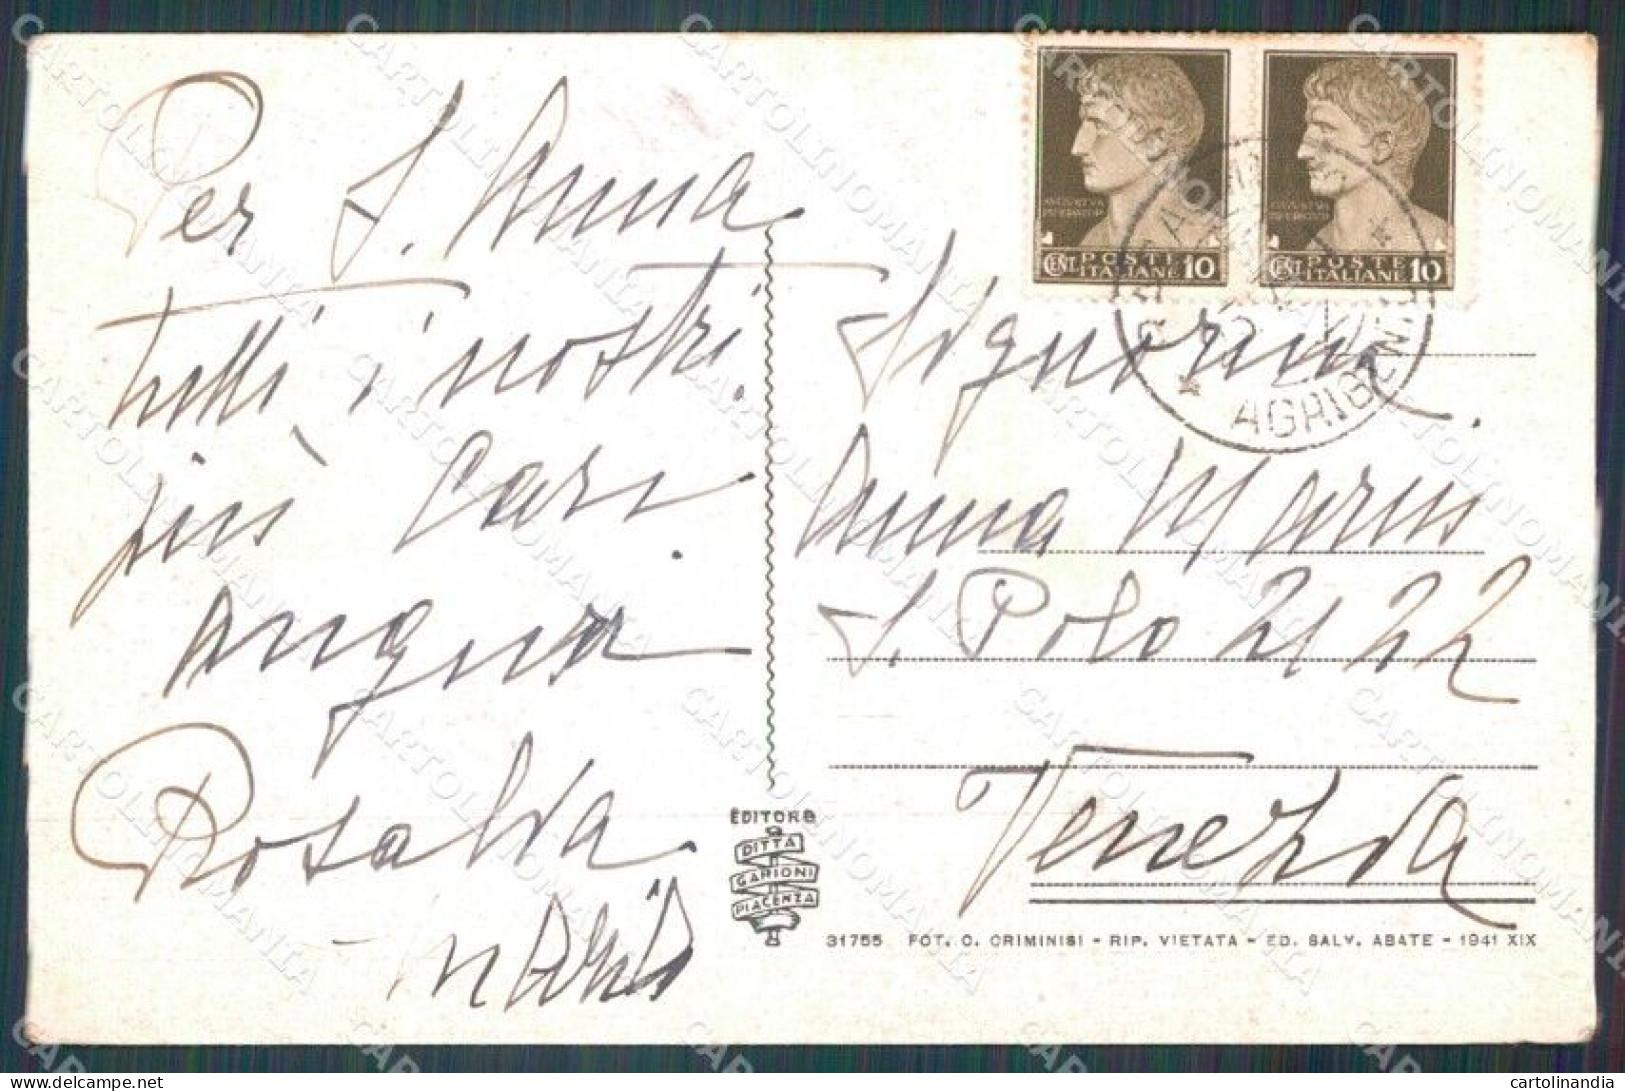 Per S. Anna
tutti i nostri
più cari
auguri
Rosalia
CENT. POSTE ITALIANE 10
CENT. POSTE ITALIANE 10
AGRIGENTO
Signorina
Anna
S. Polo 2122
Venezia
EDITORE
DITTA
GARIONI
PIACENZA
31755 FOT. C. CRIMINISI - RIP. VIETATA - ED. SALV. ABATE - 1941 XIX
CARTOLINOMANIA
cartolinandia